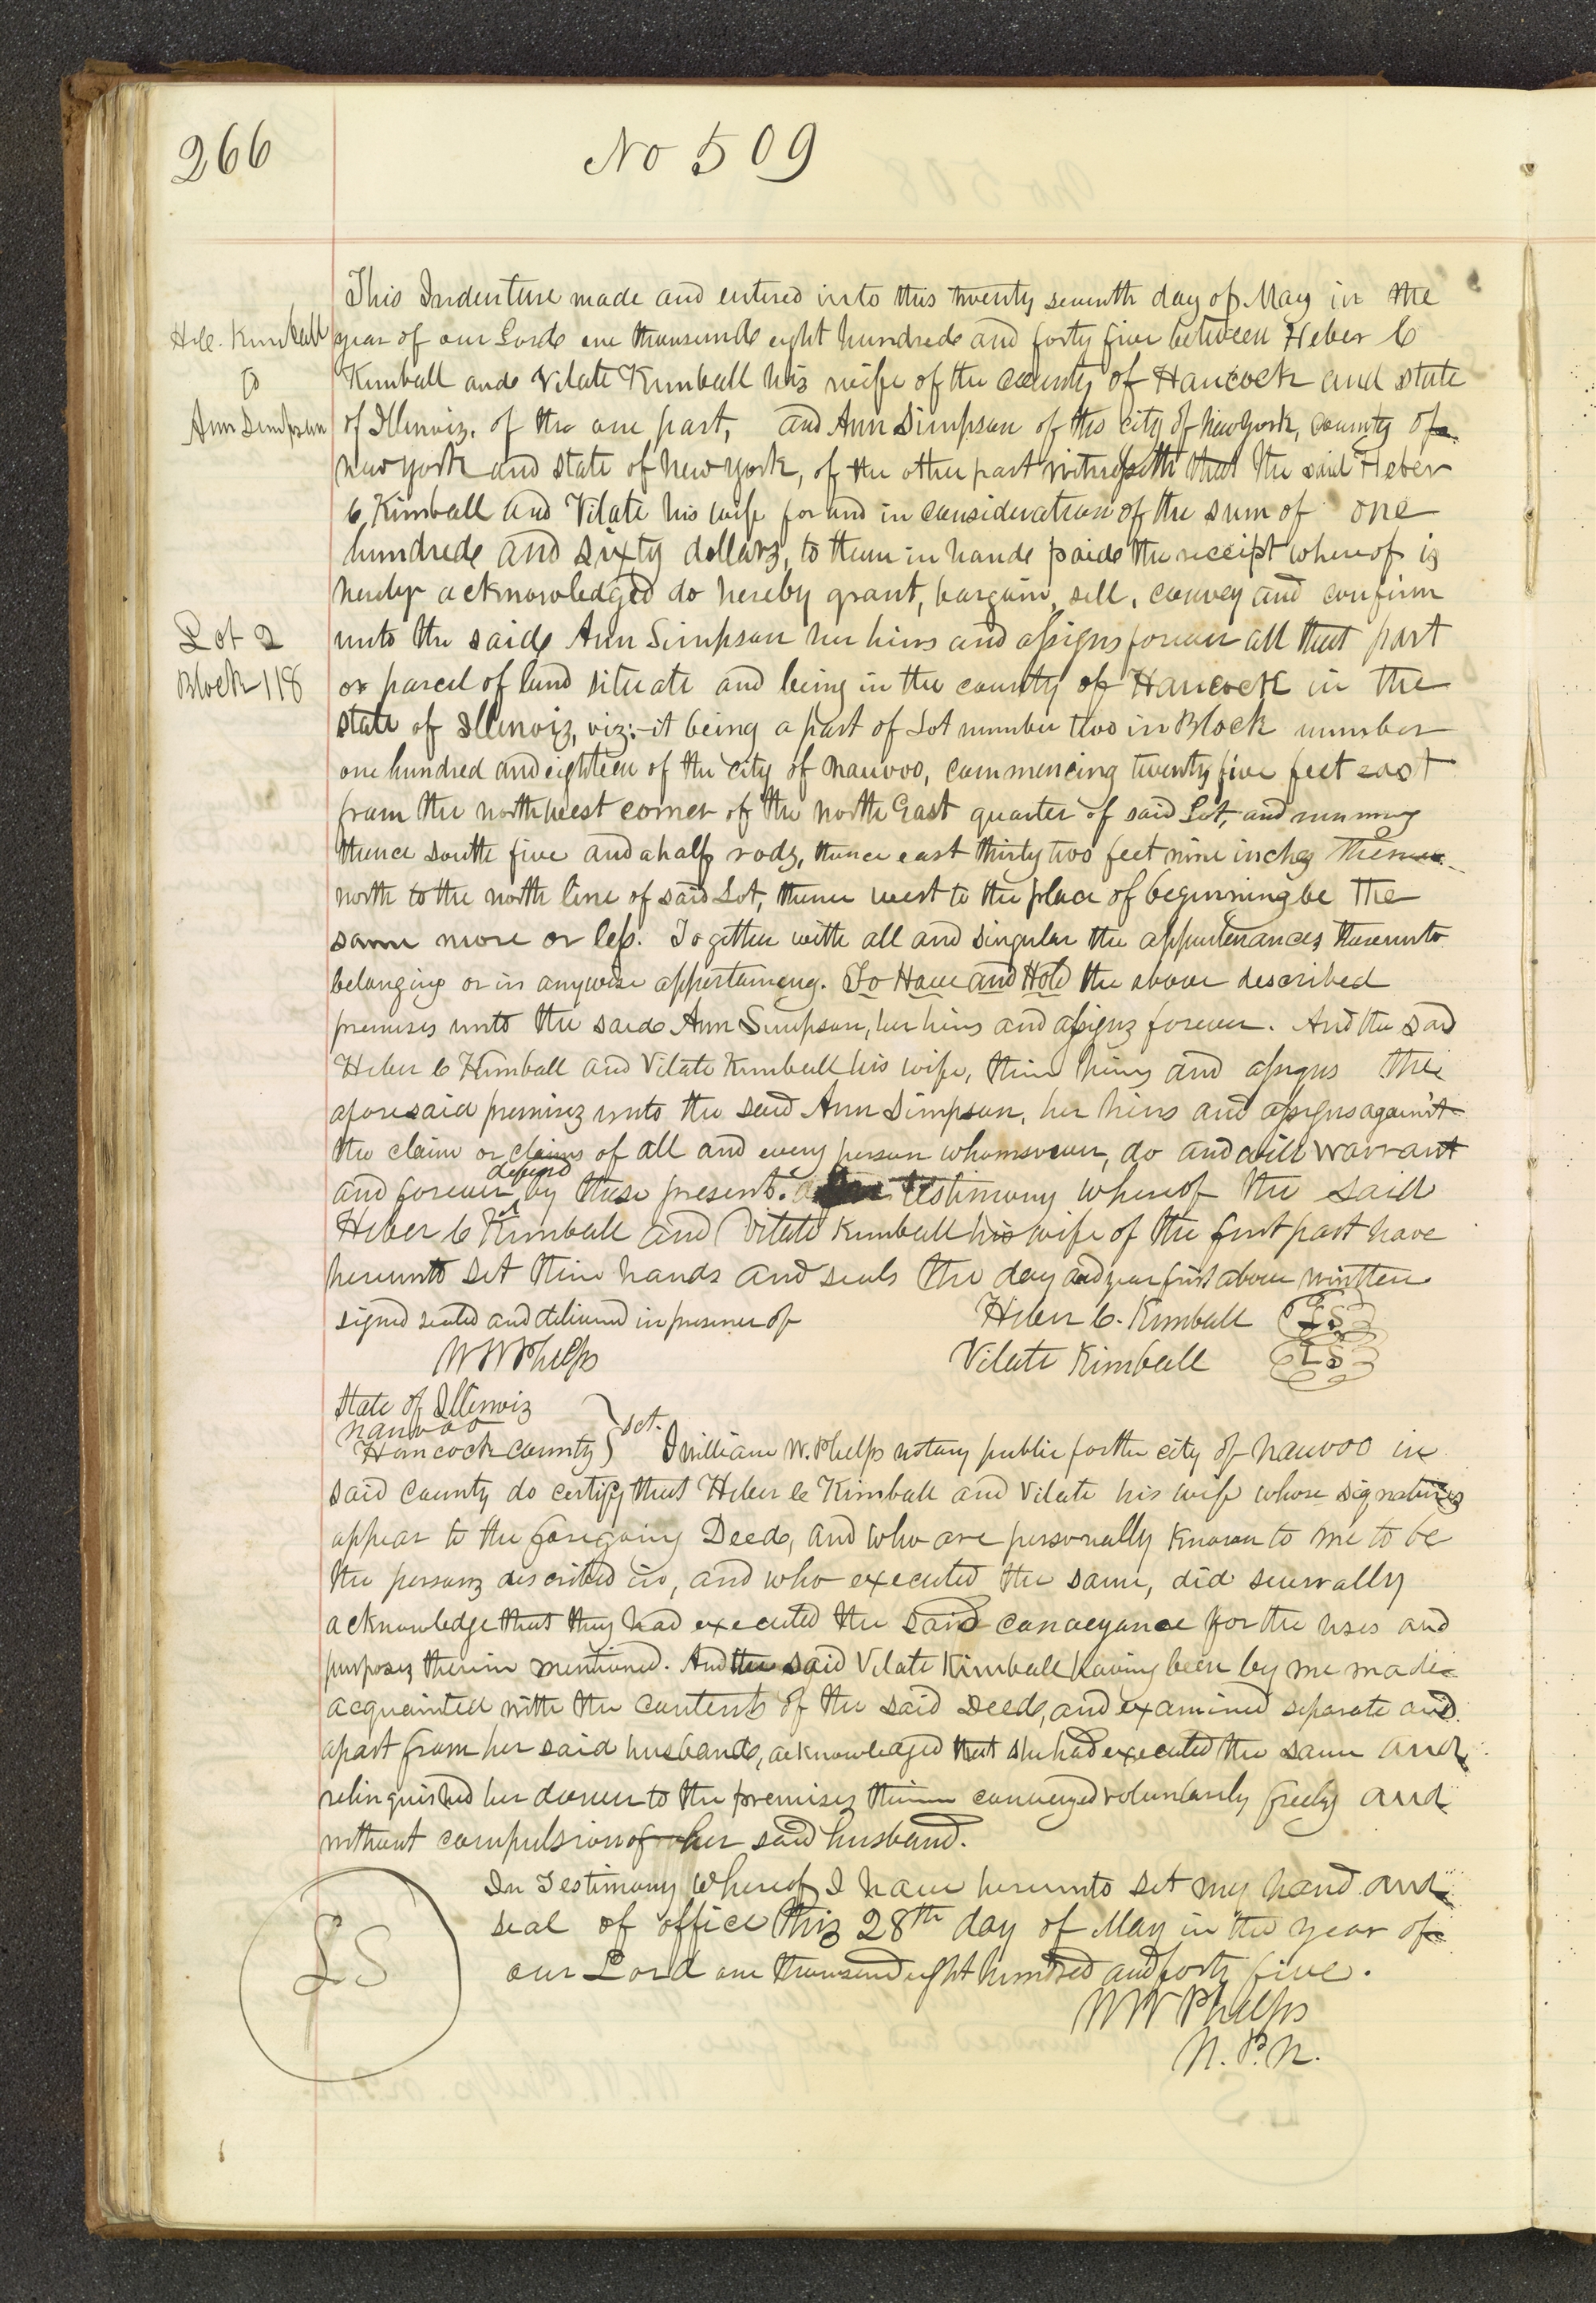 266
No 509
This Indenture made and entered into this twenty seventh day of May in the
H.C. Kimball
year of our Lord one thousand eight hundred and forty five between Heber C
to
Kimball and Vilate Kimball his wife of the county of Hancock and state
Ann Simpson
of Illinois, of the one part, and Ann Simpson of the city of New York, county of
new york and state of new york, of the other part witnesseth that the said Heber
C, Kimball and Vilate his wife for and in consideration of the sum of one
hundred and sixty dollars, to them in hand paid the receipt whereof is
hereby acknowledged do hereby grant, bargain, sell, convey and confirm
Lot 2
unto the said Ann Simpson her heirs and assigns forever all that part
Block 118
or parcel of land situate and being in the county of Hancock in the
state of Illinois, viz:- it being a part of Lot number two in Block number
one hundred and eighteen of the city of nauvoo, commencing twenty five feet east
from the northwest corner of the north East quarter of said Lot, and running
thence south five and a half rods, thence east thirty two feet nine inches thence
north to the north line of said Lot, thence west to the place of beginning be the
same more or less. Together with all and singular the appurtenances thereunto
belonging or in anywise appertaining. To Have and Hold the above described
premises unto the said Ann Simpson, her heirs and assigns forever. And the said
Heber C Kimball and Vilate Kimball his wife, their heirs and assigns the
aforesaid premises unto the said Ann Simpson, her heirs and assigns against
the claim or claims of all and every person whomsoever, do and will warrant
and forever defend by these presents. testimony whereof the said
Heber C Kimball and Vilate Kimball his wife of the first part have
hereunto set their hands and seals the day and year first above written
signed sealed and delivered in presence of Heber C. Kimball LS
W W Phelps Vilate Kimball LS
State of Illinois
nauvoo
Hancock county } sct. I william W. Phelps notary public for the city of nauvoo in
said county do certify that Heber C Kimball and Vilate his wife whose signatures
appear to the foregoing Deed, and who are personally known to me to be
the persons described in, and who executed the same, did severally
acknowledge that they had executed the said conveyance for the uses and
purposes therein mentioned. And the said Vilate Kimball having been by me made
acquainted with the contents of the said Deed, and examined separate and
apart from her said husband, acknowledged that she had executed the same and
relinquished her dower to the premises therein conveyed voluntarily freely and
without compulsion of her said husband.
In Testimony whereof I have hereunto set my hand and
seal of office this 28th day of May in the year of
LS
our Lord one thousand eight hundred and forty five.
W W Phelps
N. P. N.